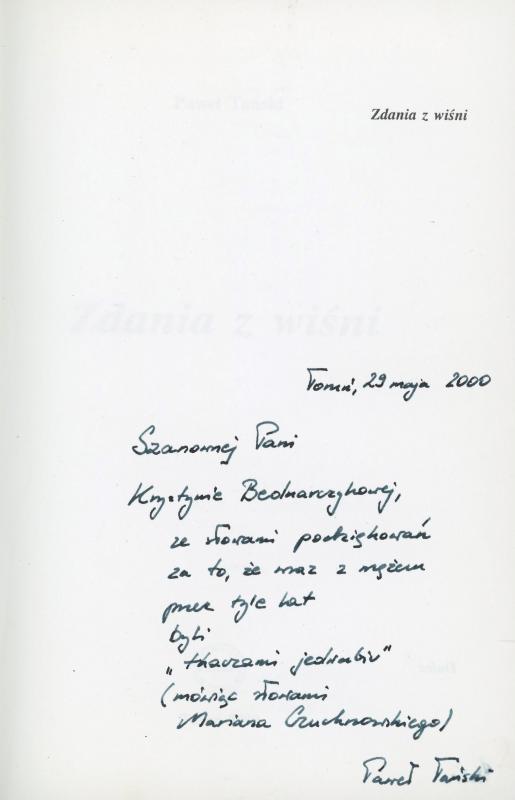 Zdania z wiśni
Paweł Tański
Zdania z wiśni
Toruń, 29 maja 2000
Szanownej Pani
Krystynie Bednarczykowej,
ze słowami podziękowań
za to, że wraz z mężem
przez tyle lat
byli
„tkaczami jedwabiu"
(mówiąc słowami
Mariana Czuchnowskiego)
Paweł Tański